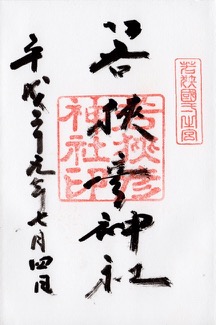 若狭國一之宮
若狭彦神社
若狭彦
神社印
平成二十九年七月四日